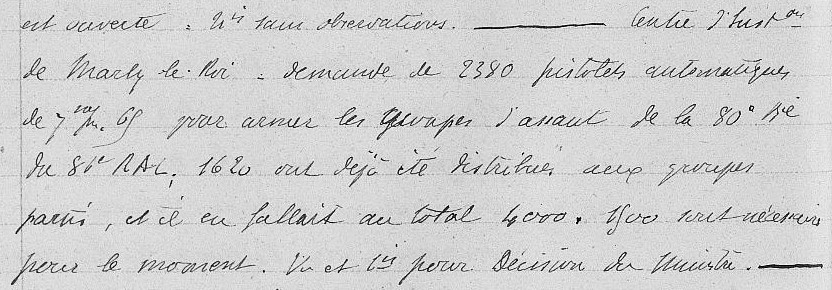 est ouverte. Tis sans observations. — Centre d'Inston
de Marly-le-Roi - demande de 2380 pistolets automatiques
de 7 m/m 65 pour armer les groupes d'assaut de la 80e Bie
du 86e RAL; 1620 ont déjà été distribués aux groupes
partis, et il en fallait au total 4000. 1500 sont nécessaires
pour le moment. Vu et tis pour Décision du Ministre. —